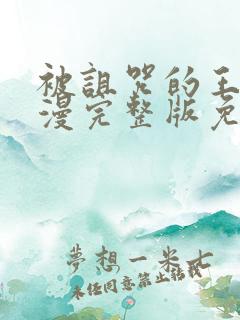 被詛咒的王
漫完整版免
夢想一米七
未经同意禁止转载